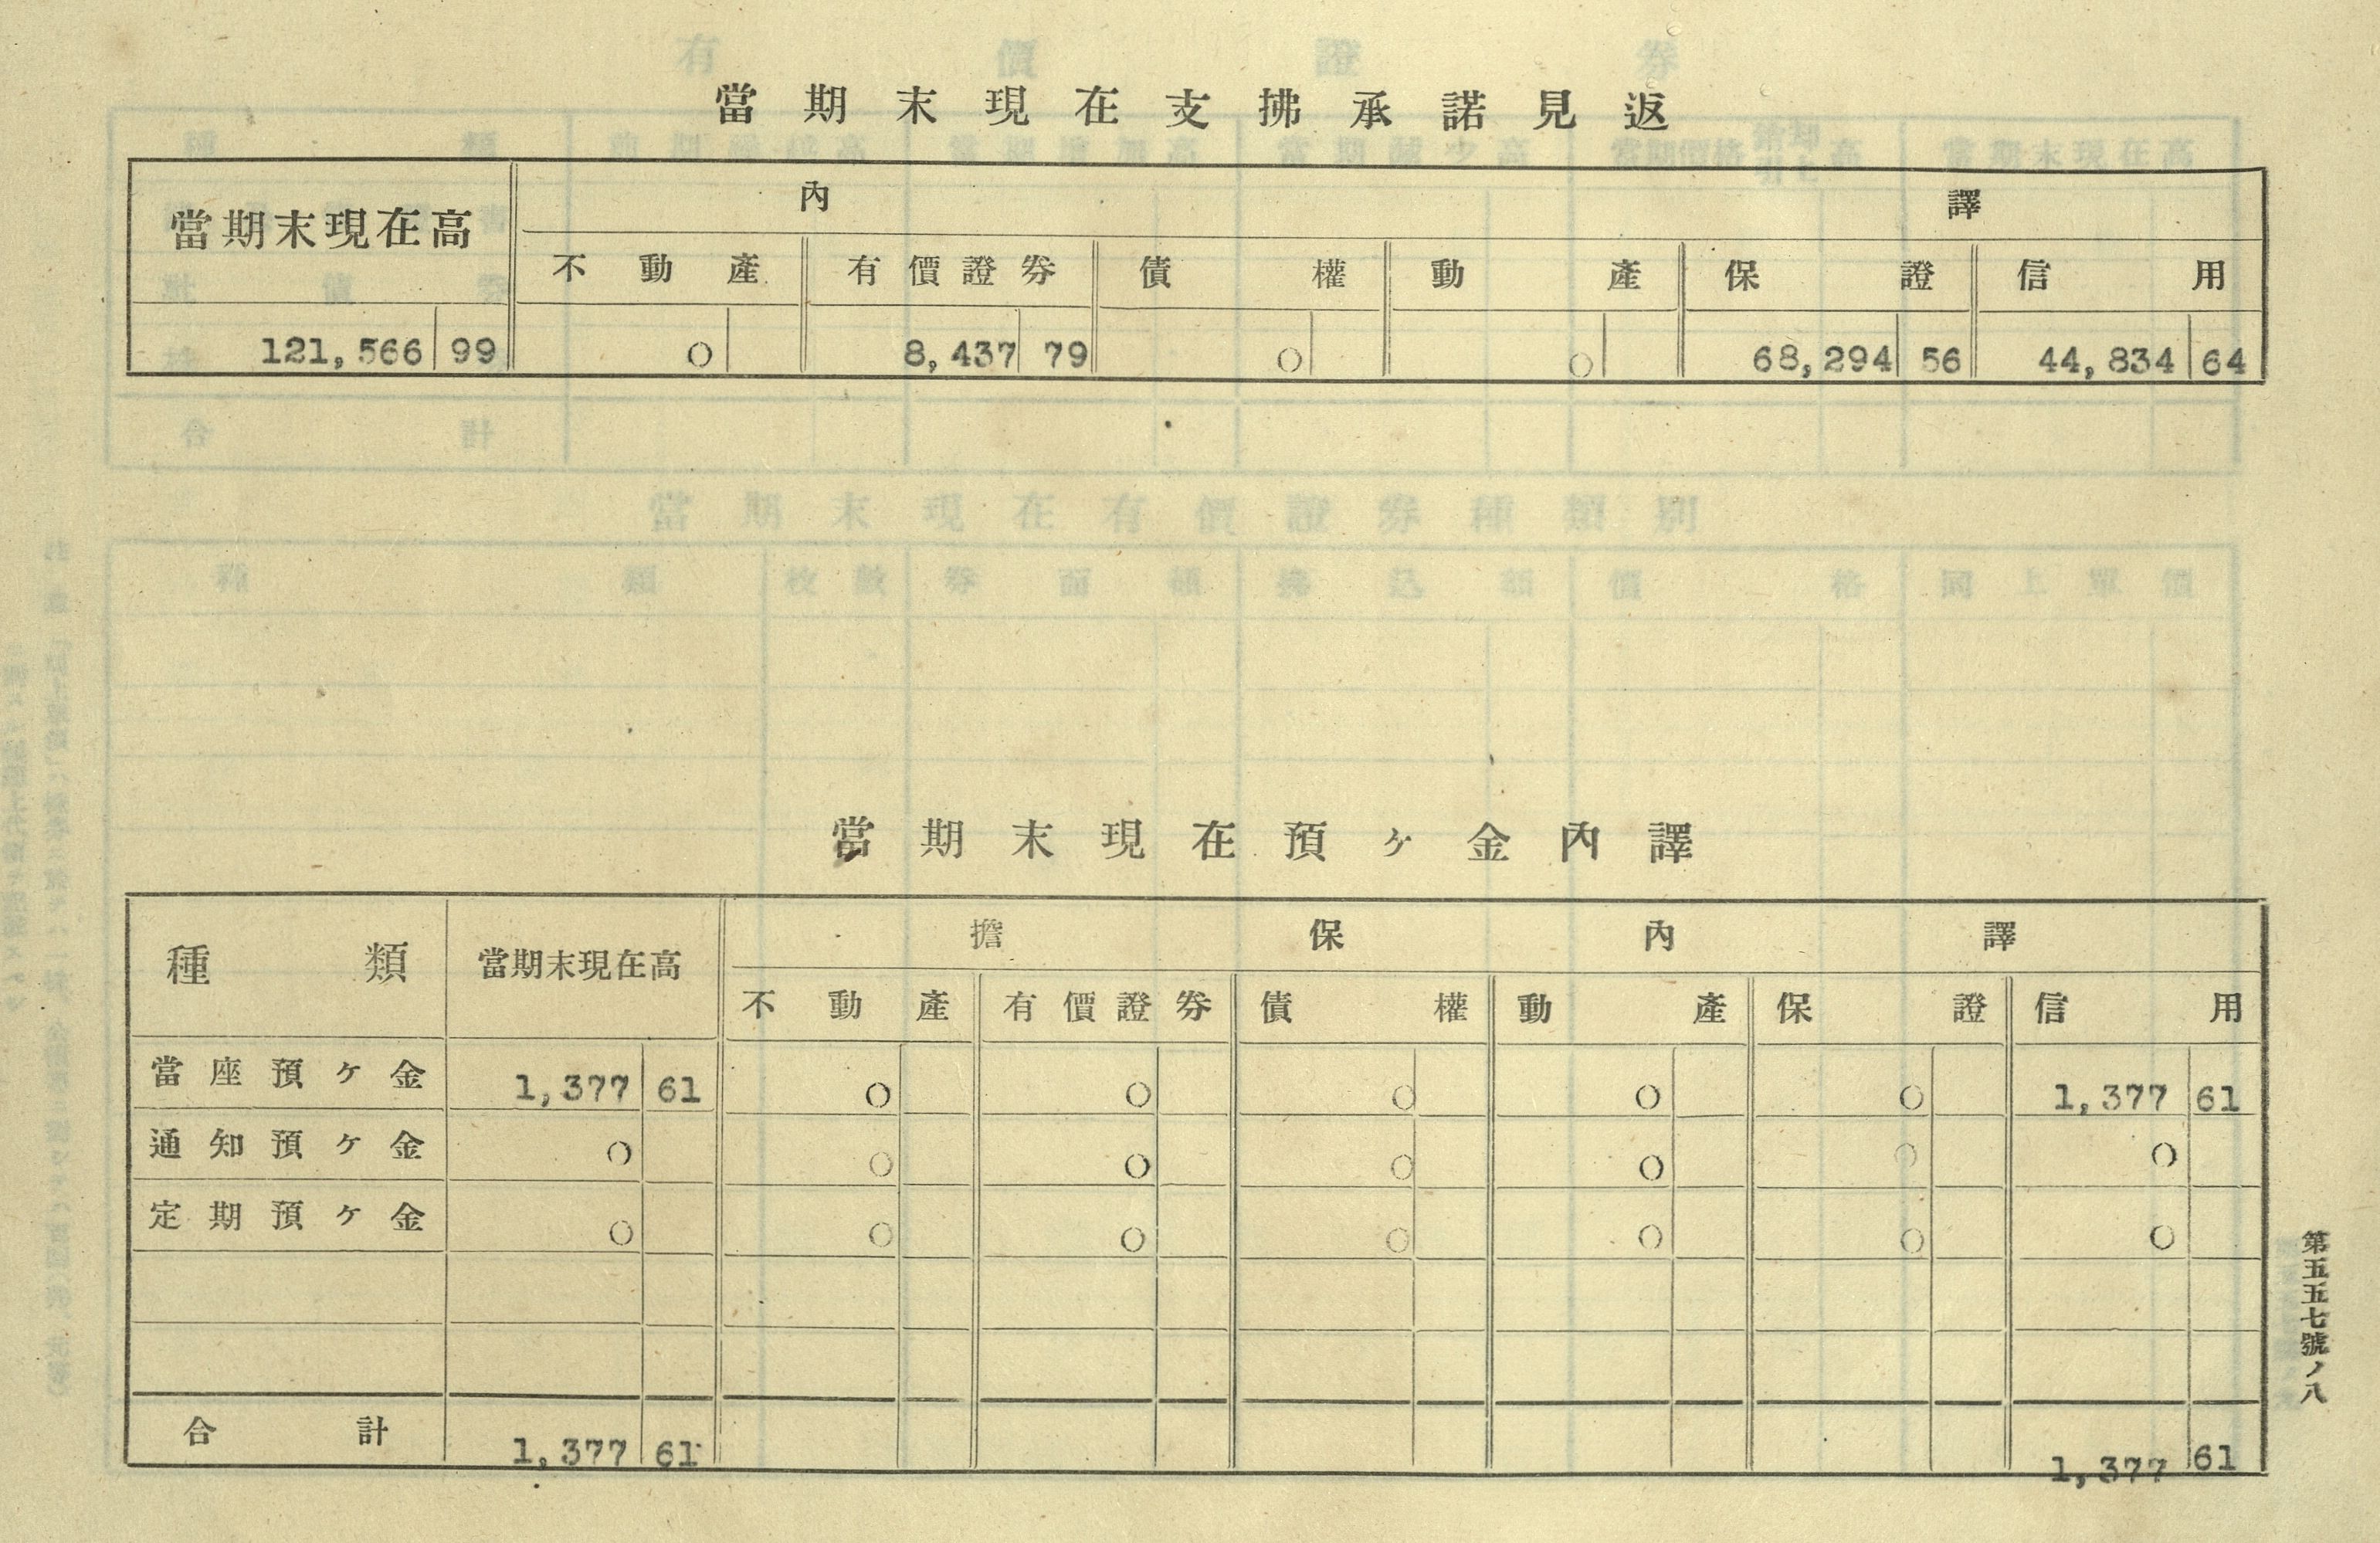 當期末現在支拂承諾見返
當期末現在高 內譯
不動產 有價證券 債權 動產 保證 信用
121,566 99 ○ 8,437 79 ○ ○ 68,294 56 44,834 64
當期末現在預ヶ金內譯
種類 當期末現在高 擔保內譯
不動產 有價證券 債權 動產 保證 信用
當座預ヶ金 1,377 61 ○ ○ ○ ○ ○ 1,377 61
通知預ヶ金 ○ ○ ○ ○ ○ ○ ○
定期預ヶ金 ○ ○ ○ ○ ○ ○ ○
合計 1,377 61 1,377 61
第五五七號ノ八